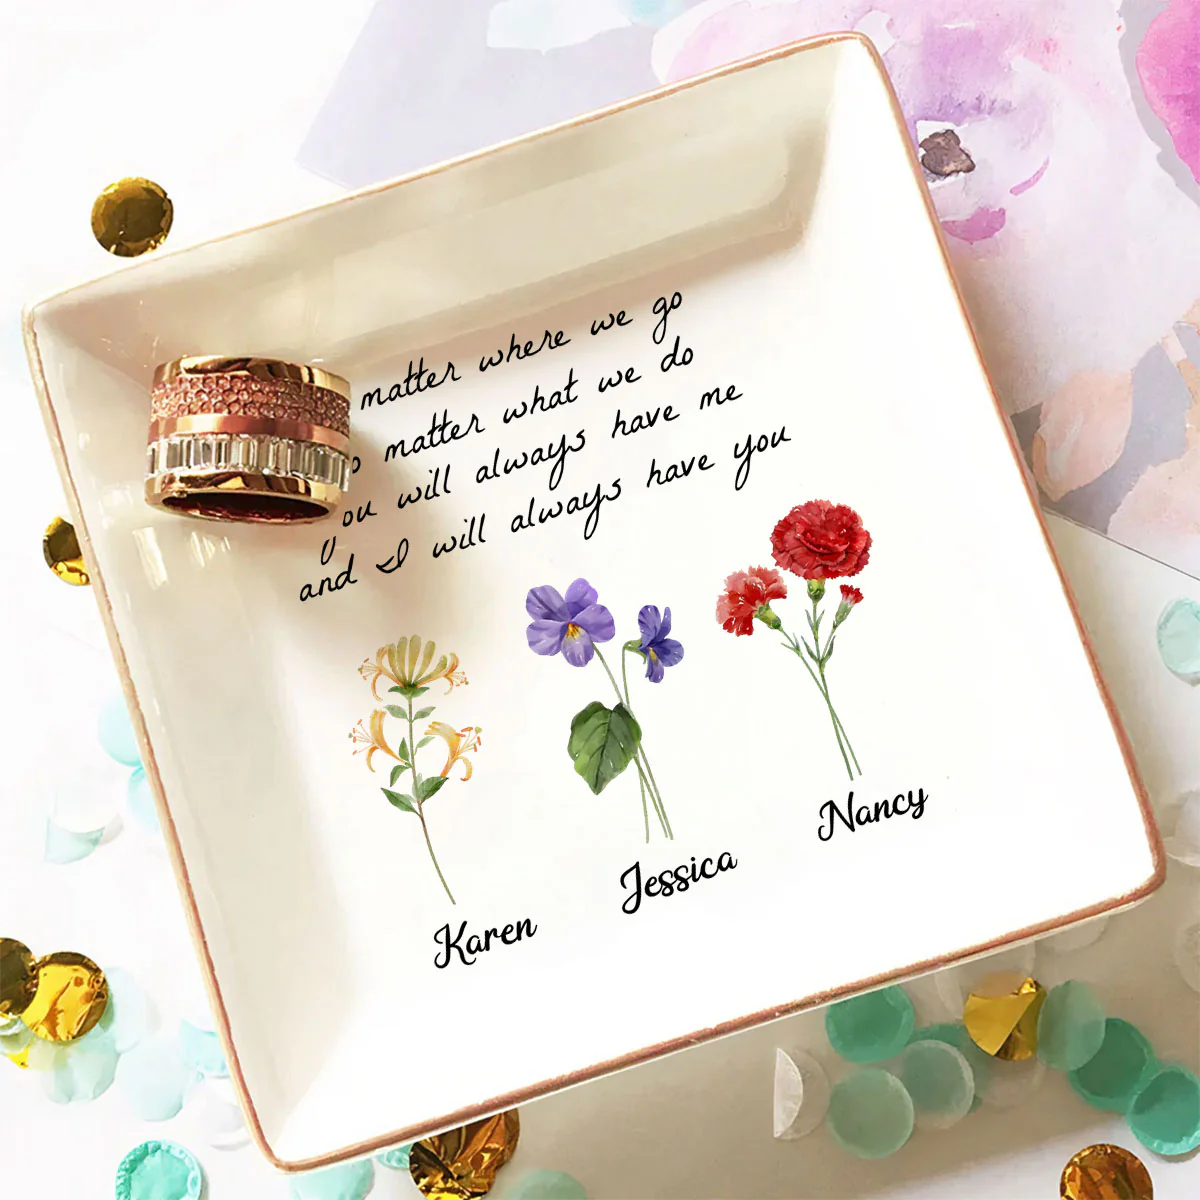 matter where we go
o matter what we do
you will always have me
and I will always have you
Karen
Jessica
Nancy